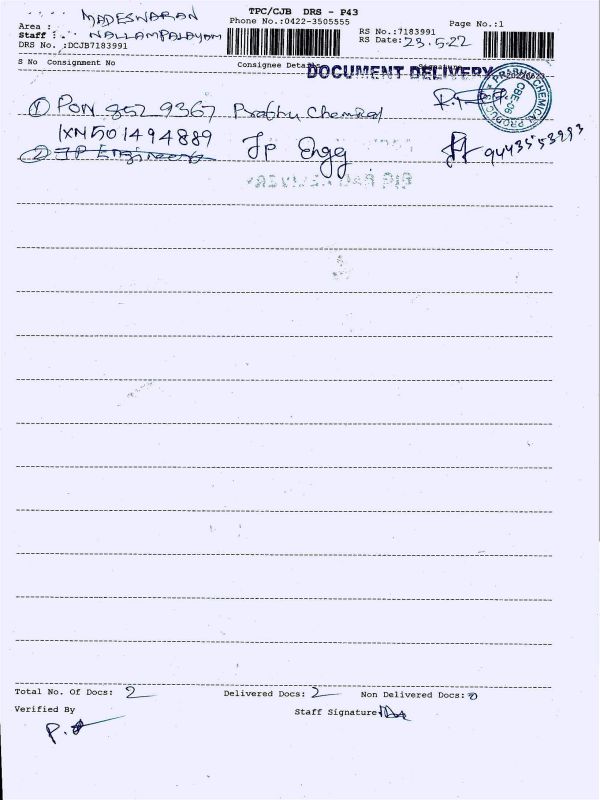 TPC/CJB DRS - P43
MADESWARAN
Area :
Phone No.:0422-3505555
Page No.:1
Staff : NALLAMPALAYAM
RS No.:7183991
DRS No. :DCJB7183991
RS Date:23.5.22
S No Consignment No
Consignee
DOCUMENT DELIVERY
PRABHU CHEMICAL
CBE-06
① PON 852 9367 Prabhu Chemical
IXN501494889
② JP Engineers
JP Engg
9443553993
Total No. Of Docs: 2
Delivered Docs: 2
Non Delivered Docs: 0
Verified By
Staff Signature